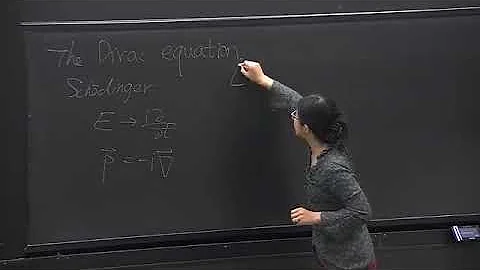 The Dirac equation
Schödinger
E → i∂/∂t
p⃗ = -i∇⃗